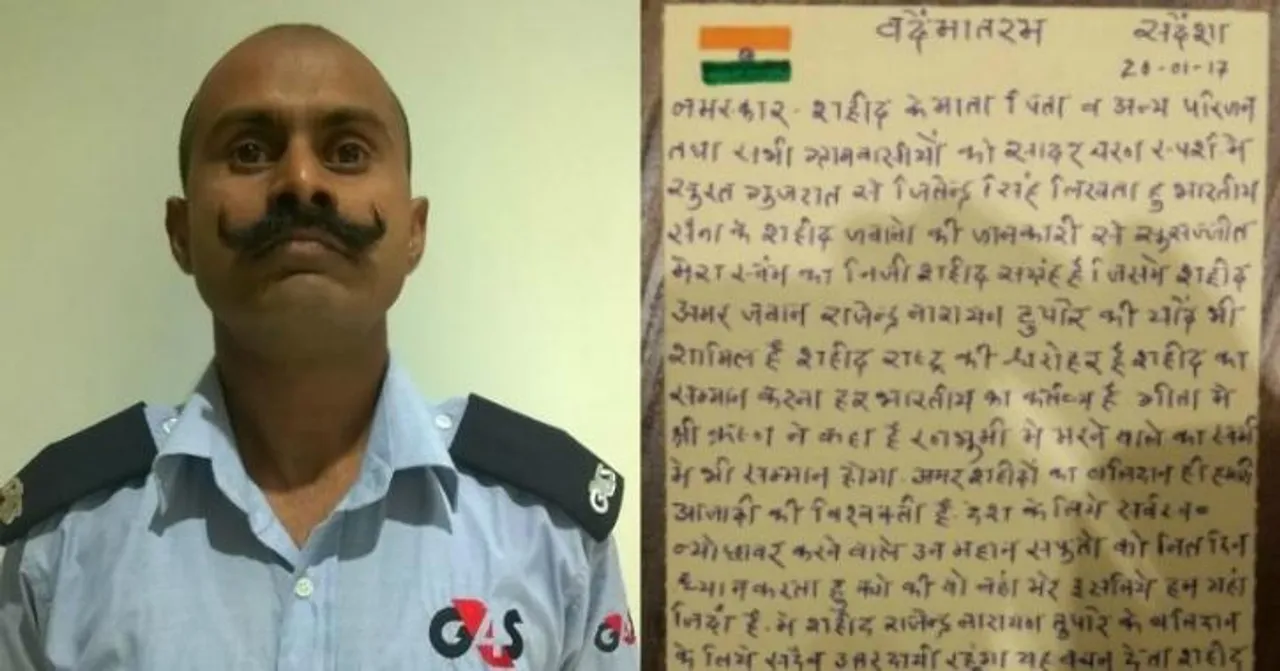 G4S
G4S
G4S
वदेंमातरम संदेशा
20-01-17
नमस्कार - शहीद के माता पिता व अन्य परिजन
तथा सभी ग्रामवासीयों को सादर चरण स्पर्श मे
सुरत गुजरात से जितेन्द्र सिंह लिखता हु भारतीय
सैना के शहीद जवानो की जानकारी से सुसज्जीत
मेरा स्वंम का निजी शहीद सग्रंह है जिसमे शहीद
अमर जवान राजेन्द्र नारायण तुपोर की यादें भी
शामिल है शहीद राष्ट्र की धरोहर है शहीद का
सम्मान करना हर भारतीय का कर्तव्य है गीता मे
श्री कृष्ण ने कहा है रनभुमी मे मरने वाले का स्वर्ग
मे भी सम्मान होगा. अमर शहीदों का बलिदान ही हमारी
आजादी की है. देश के लिये सर्वस्व
न्योछावर करने वाले उन महान सपुतो को नित दिन
ध्यान करता हु क्यो की वो वहां मरे इसलिये हम यहां
जिंदा है. मे शहीद राजेन्द्र नारायण तुपोर के बलिदान
के लिये सदैव उत्तरदायी रहुंगा यह वचन देता शहीद